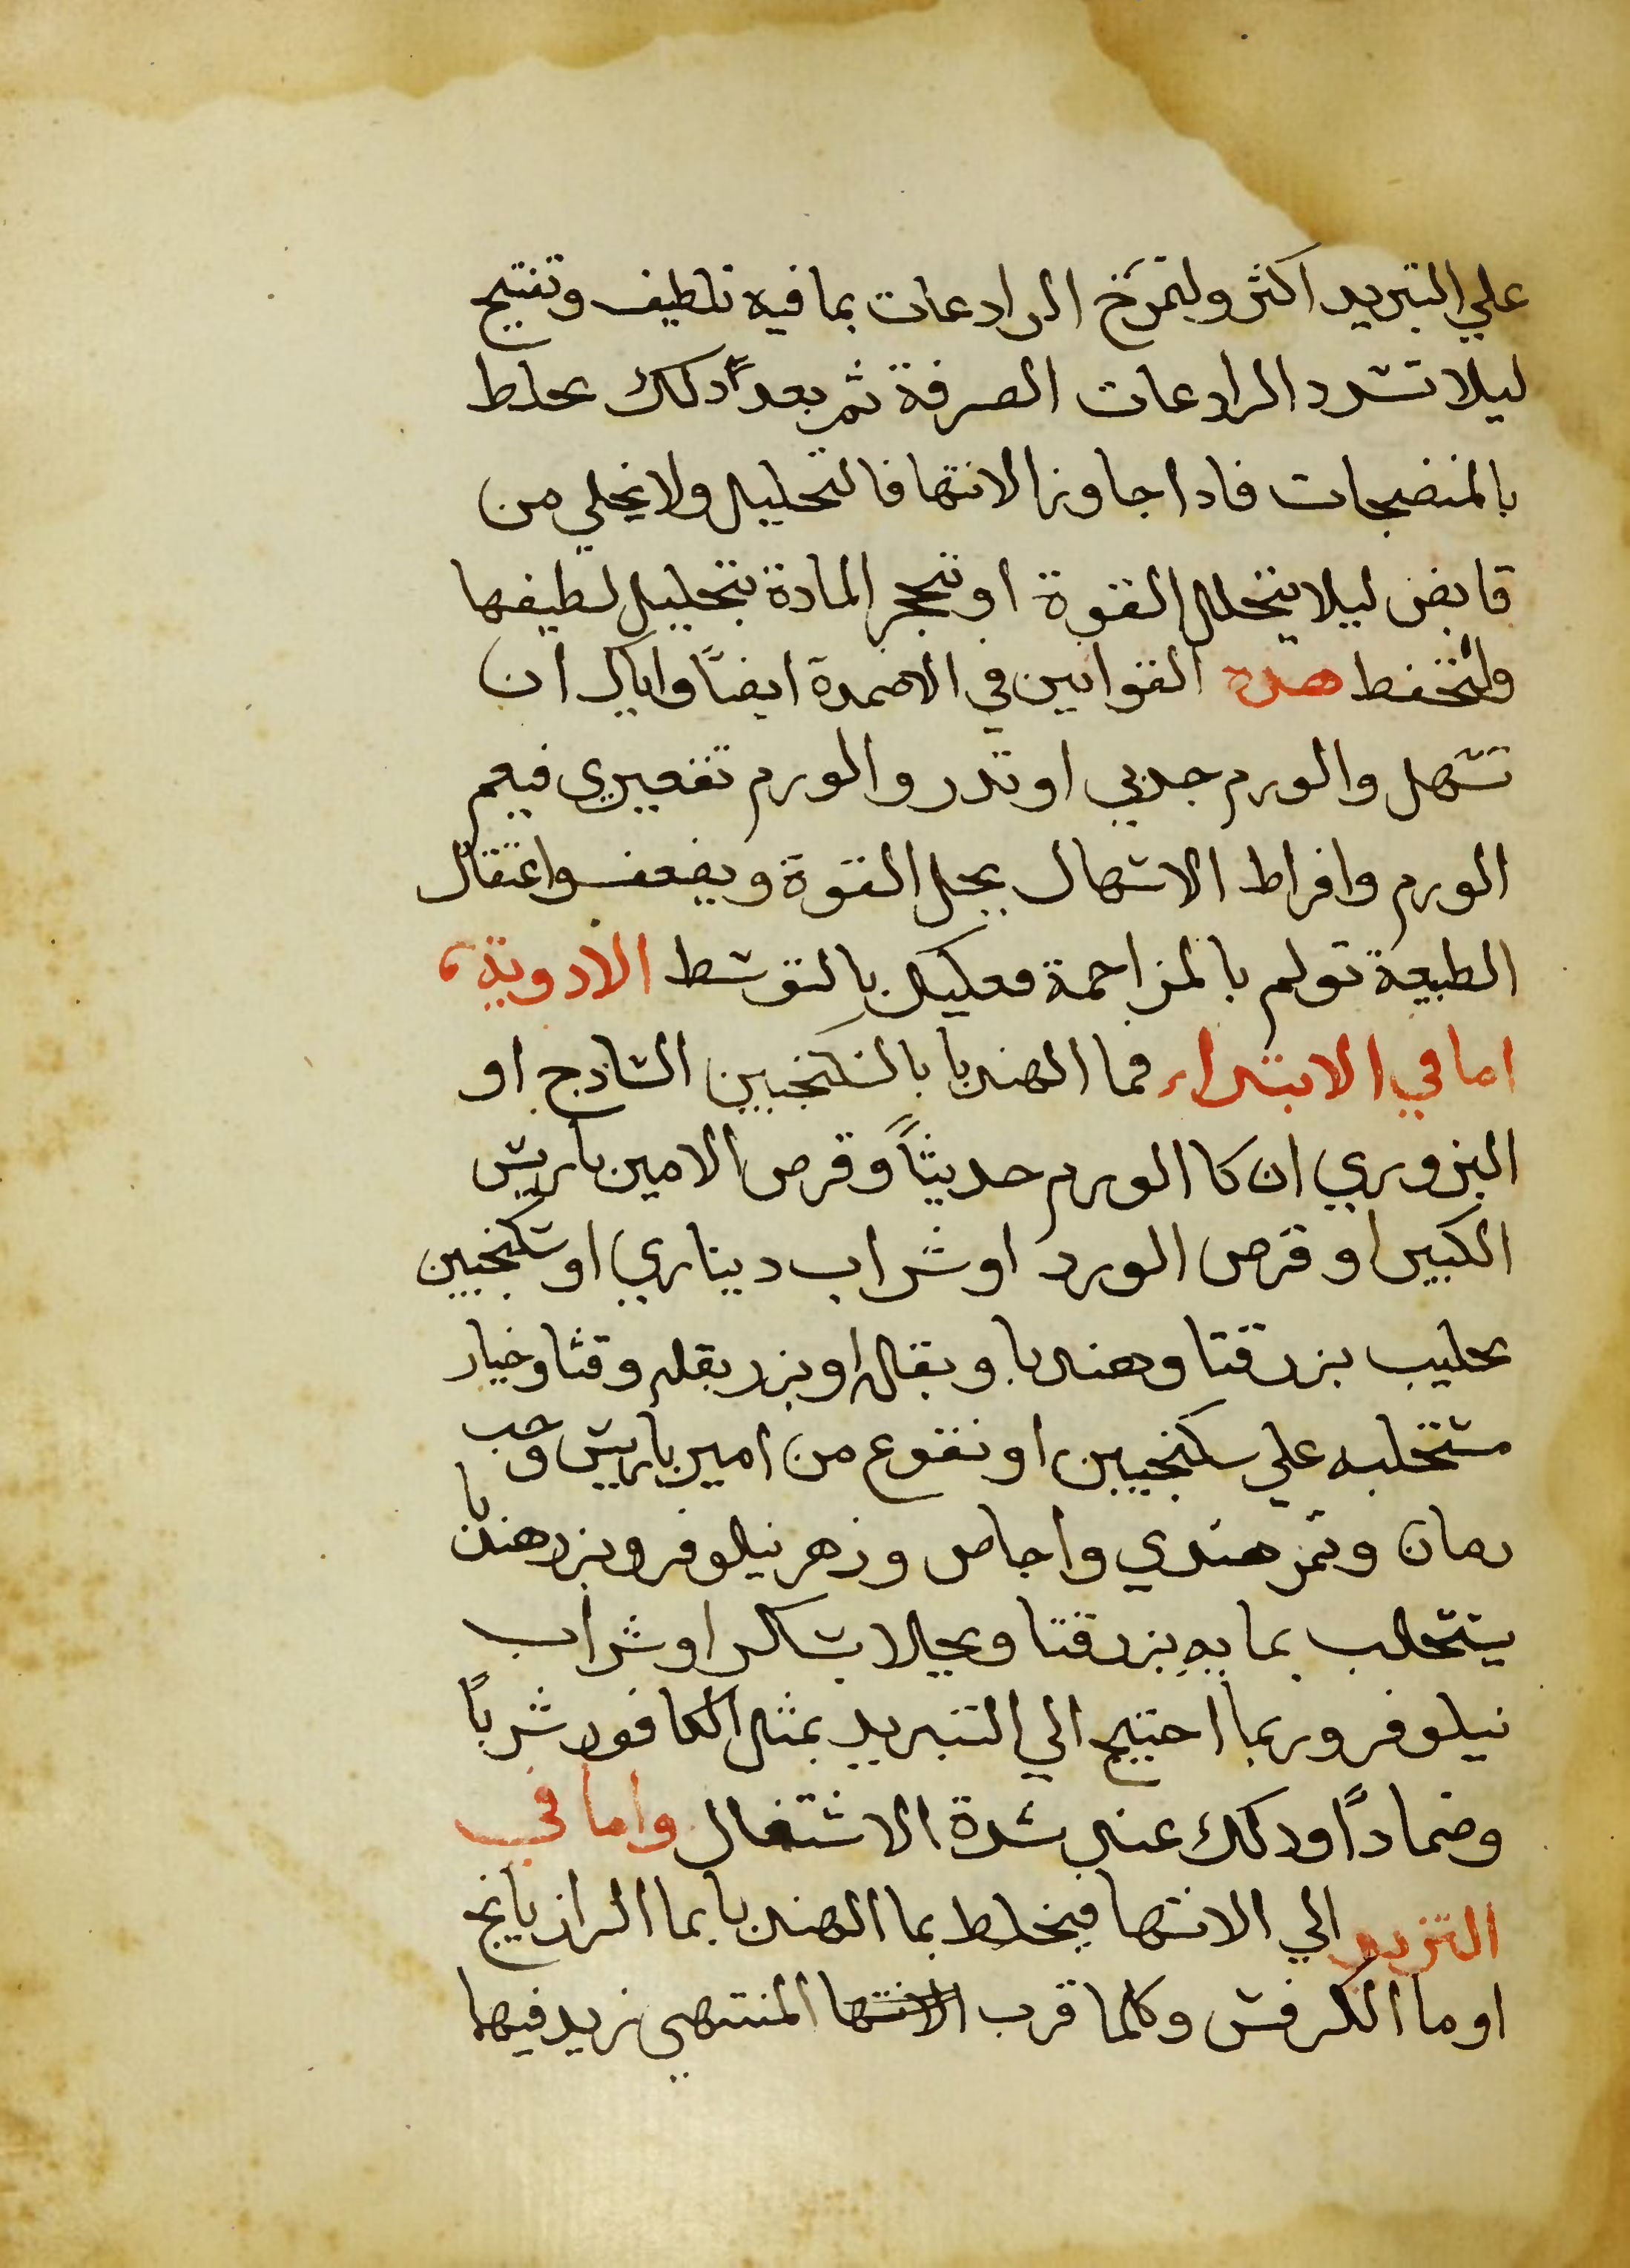 علي التبريد اكثر ولتمزج الرادعات بما فيه تلطيف وتفتيح
ليلا تسدد الرادعات الصرفة ثم بعد دلك يخلط
بالمنضجات فادا جاوز الانتها فالتحليل ولا يخلي من
قابض ليلا يتحلل القوة او تتحجر المادة بتحليل لطيفها
ولتحفظ هده القوانين في الاضمدة ايضًا واياك ان
تسهل والورم حدبي او تدر والورم تقعيري فيعم
الورم وافراط الاسهال يحل القوة ويضعف واعتقال
الطبيعة تولم بالمزاحمة فعليك بالتوسط الادوية
اما في الابتداء فما الهندبا بالسكنجبين السادج او
البزوري ان كا الورم حديثًا وقرص الامين باريس
الكبير او قرص الورد او شراب ديناري او سكنجبين
بحليب بزر قثا وهندبا وبقله او بزر بقله وقثا وخيار
مستحلبه علي سكنجبين او نقوع من امير باريس وحب
رمان وتمر هندي واجاص وزهر نيلوفر وبزر هندبا
يستحلب بما به بزر قثا ويحلا بسكر او شراب
نيلوفر وربما احتيج الي التبريد بمثل الكافور شربًا
وضمادًا ودلك عند شدة الاشتعال واما في
التزيد الي الانتها فيخلط بما الهندبا بما الرازيانج
او ما الكرفس وكلما قرب الانتها المنتهي زيد فيها